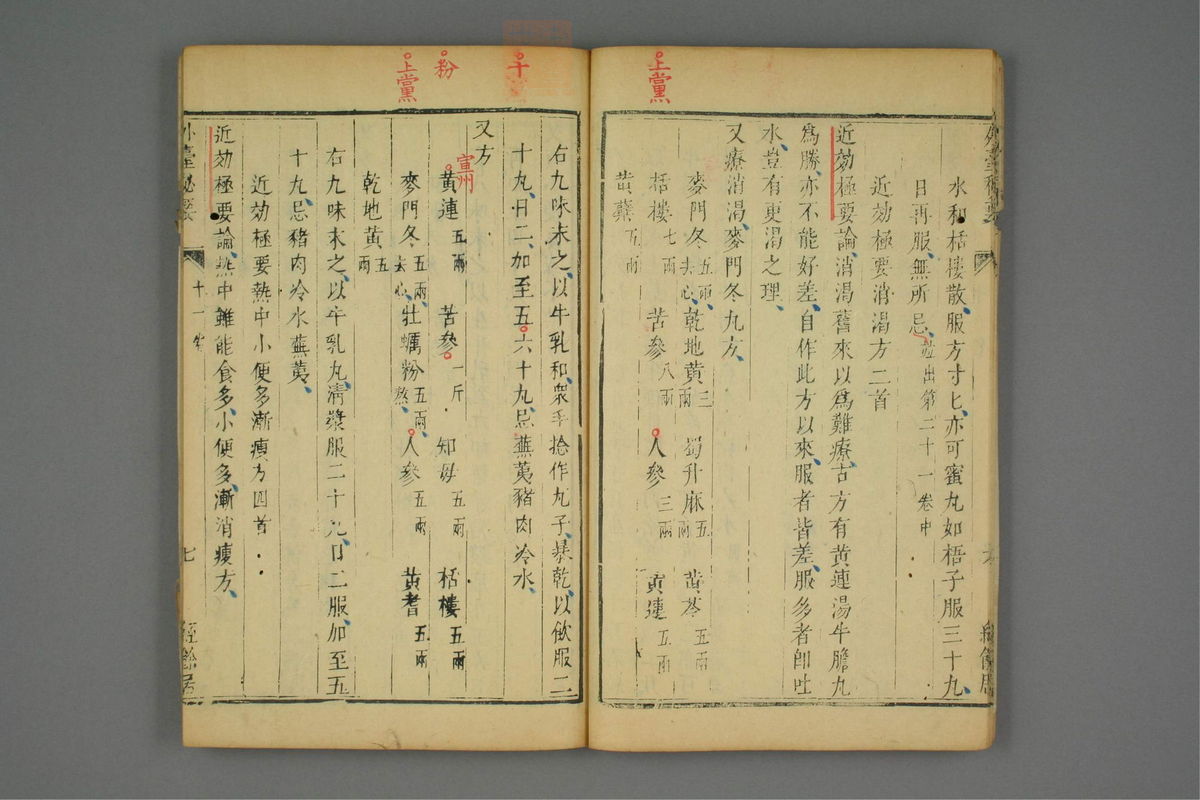 上黨
水和栝樓散服方寸匕亦可蜜丸如梧子服三十丸
日再服無所忌並出第二十一卷中
近効極要消渴方二首
近効極要論消渴舊來以爲難療古方有黄連湯牛膽丸
爲勝亦不能好差自作此方以來服者皆差服多者卽吐
水豈有更渴之理
又療消渴麥門冬丸方
麥門冬五兩去心 乾地黄三兩 蜀升麻五兩 黄芩五兩
栝樓七兩 苦參八兩 人參三兩 黄連五兩
黄蘗五兩
十
粉
上黨
右九味末之以牛乳和衆手捻作丸子暴乾以飲服二
十丸日二加至五六十丸忌蕪荑豬肉冷水
又方
宣州
黄連五兩 苦參一斤 知母五兩 栝樓五兩
麥門冬五兩去心 牡蠣粉五兩熬 人參五兩 黄耆五兩
乾地黄五兩
右九味末之以牛乳丸清漿服二十丸日二服加至五
十丸忌豬肉冷水蕪荑
近効極要熱中小便多漸瘦方四首
近効極要論熱中雖能食多小便多漸消瘦方
外臺秘要
十一卷
七
經餘居